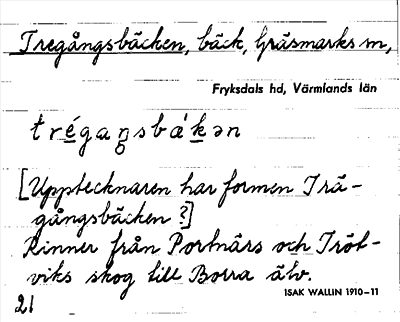 Tregångsbäcken, bäck, Gräsmarks sn,
Fryksdals hd, Värmlands län
trégaŋsbǽkən
[Upptecknaren har formen Trä-
gångsbäcken?]
Rinner från Portnärs och Tröt-
viks skog till Borra älv.
ISAK WALLIN 1910-11
21